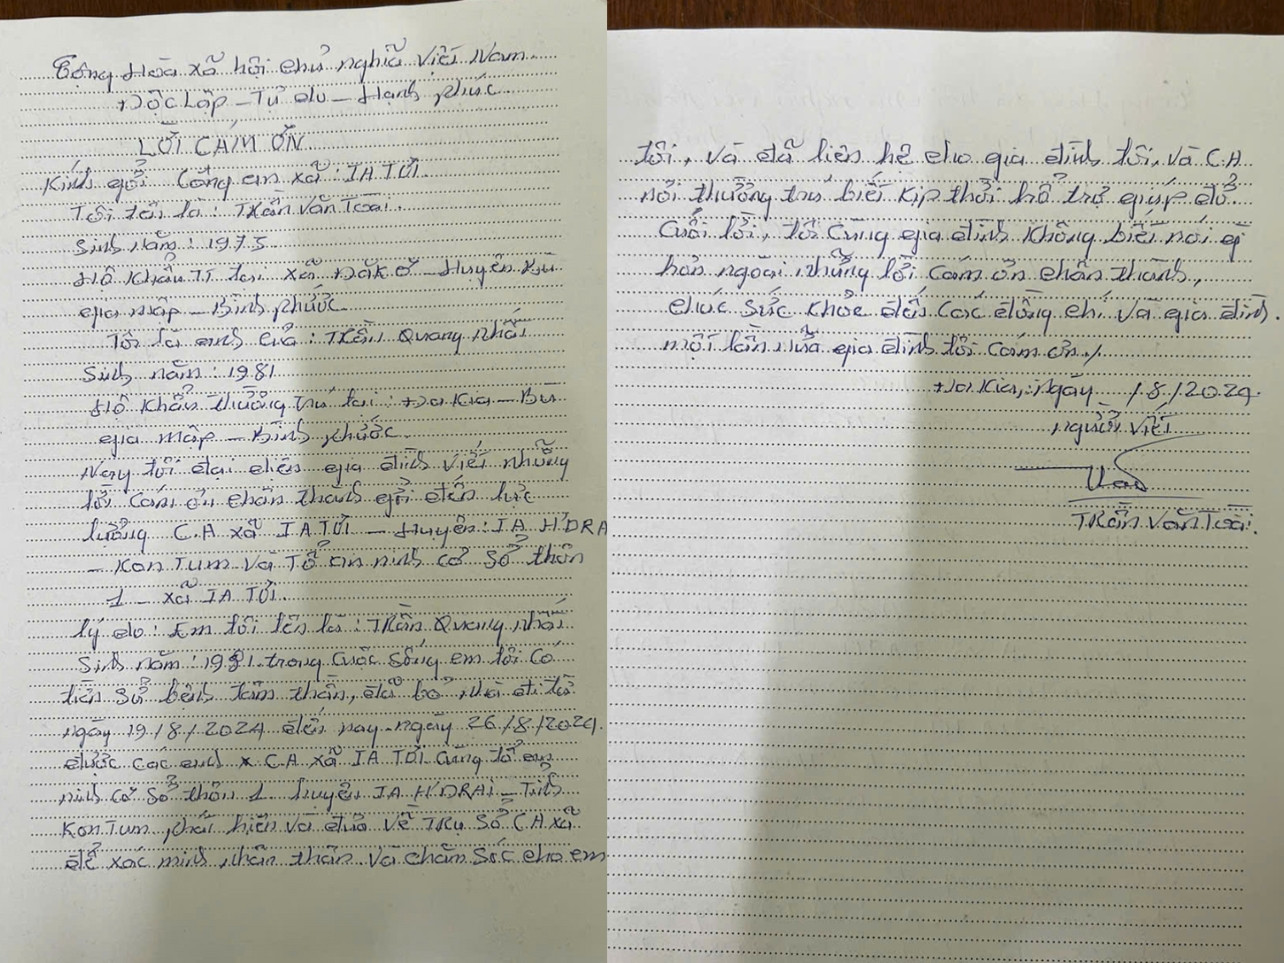 Cộng Hòa xã hội chủ nghĩa Việt Nam
Độc Lập - Tự do - Hạnh phúc
LỜI CÁM ƠN
Kính gởi Công an xã: IA TƠI
Tôi tên là: Trần Văn Toài.
Sinh năm: 1975
Hộ Khẩu TT tại xã Đăk Ơ - Huyện Bù
gia mập - Bình phước
Tôi là anh của: Trần Quang Nhất
Sinh năm: 1981
Hộ Khẩn thường trú tại: Đa Kia - Bù
gia mập - Bình phước.
Nay tôi đại diện gia đình viết những
lời cám ơn chân thành gởi đến lực
lượng C.A xã IA TƠI - Huyện: IA H'DRA
- Kon Tum và Tổ an ninh cơ Sở thôn
1 - xã IA TƠI.
lý do: Em tôi tên là: Trần Quang Nhất
Sinh năm: 1981. trong cuộc sống em tôi có
tiền sử bệnh tâm thần, đã bỏ nhà đi từ
ngày 19/8/2024 đến nay ngày 26/8/2024.
được các anh C.A xã IA TƠI cùng tổ an
ninh cơ Sở thôn 1 huyện IA H'DRAI - Tỉnh
Kon Tum phát hiện và đưa về Trụ Sở C.A xã
để xác minh nhân thân và chăm sóc cho em
tôi, và đã liên hệ cho gia đình tôi, và C.A
nơi thường trú biết kịp thời hổ trợ giúp đở.
Cuối lời, tôi cùng gia đình không biết nói gì
hơn ngoài những lời cám ơn chân thành,
chúc sức khỏe đến các đồng chí và gia đình.
một lần nữa gia đình tôi cám ơn./
Đa Kia, ngày /8/2024.
người viết
Trần Văn Toài.